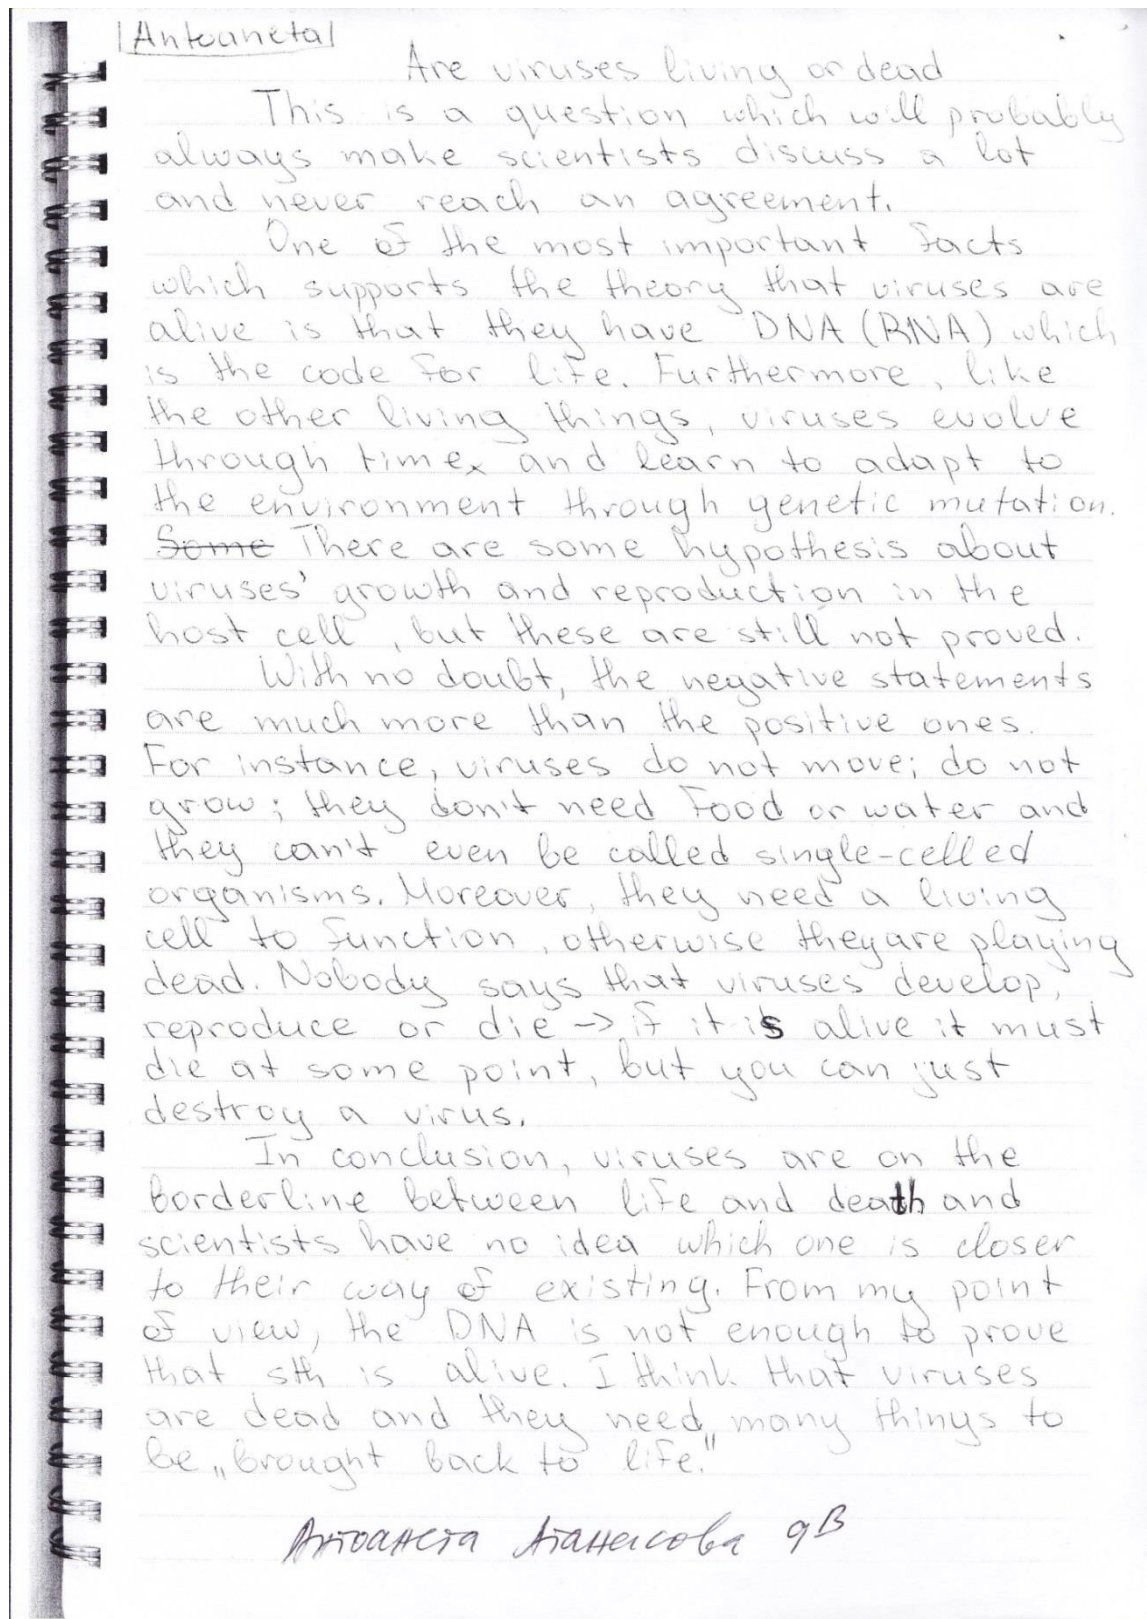 Antoaneta
Are viruses living or dead
This is a question which will probably
always make scientists discuss a lot
and never reach an agreement.
One of the most important facts
which supports the theory that viruses are
alive is that they have DNA (RNA) which
is the code for life. Furthermore, like
the other living things, viruses evolve
through time, and learn to adapt to
the environment through genetic mutation.
Some There are some hypothesis about
viruses' growth and reproduction in the
host cell, but these are still not proved.
With no doubt, the negative statements
are much more than the positive ones.
For instance, viruses do not move; do not
grow; they don't need food or water and
they can't even be called single-celled
organisms. Moreover, they need a living
cell to function, otherwise they are playing
dead. Nobody says that viruses develop,
reproduce or die -> if it is alive it must
die at some point, but you can just
destroy a virus.
In conclusion, viruses are on the
borderline between life and death and
scientists have no idea which one is closer
to their way of existing. From my point
of view, the DNA is not enough to prove
that sth is alive. I think that viruses
are dead and they need „many things to
be „brought back to life."
Антоанета Атанасова 9В